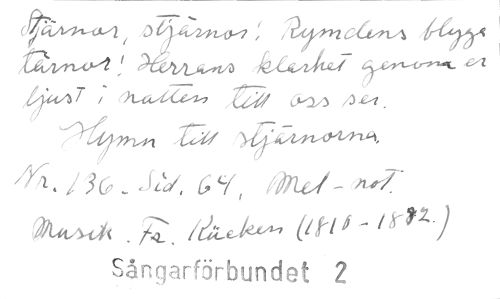 Stjärnor, stjärnor! Rymdens blyga
tärnor! Herrans klarhet genom er
ljust i natten till oss ser.
Hymn till stjärnorna.
Nr. 136. Sid. 64. Mel-not.
Musik. Fr. Kücken (1810-1882.)
Sångarförbundet 2